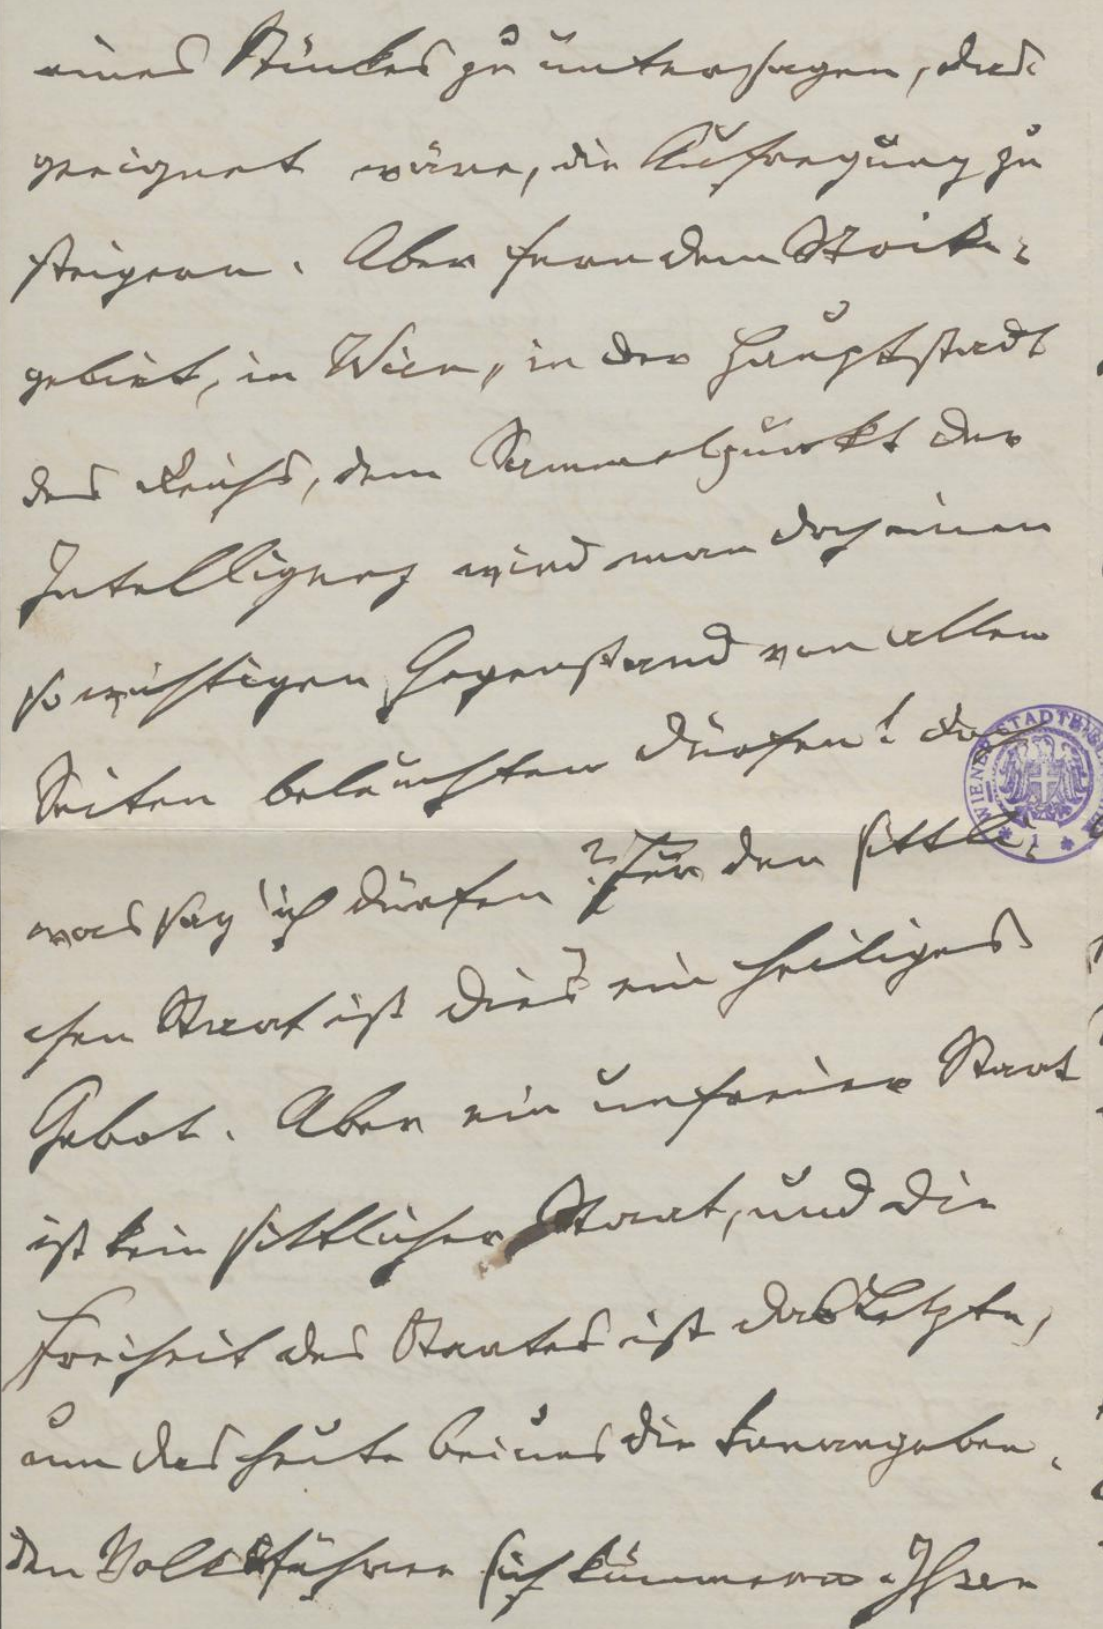 eines Stückes zu untersagen, das
geeignet wäre, die Aufregung zu
steigern. Aber fern dem Strike-
gebiet, in Wien, in der Hauptstadt
des Reichs, dem Sammelpunkt der
Intelligenz wird man doch einen
so wichtigen Gegenstand von allen
Seiten beleuchten dürfen! doch
was sag' ich dürfen? Für den sittli-
chen Staat ist dies ein heiliges
Gebot. Aber ein unfreier Staat
ist kein sittlicher Staat, und die
Freiheit des Staates ist das Letzte,
um das heute bei uns die tonangeben-
den Volksführer sich kümmern. Ihren
WIENER STADTBIBLIOTHEK